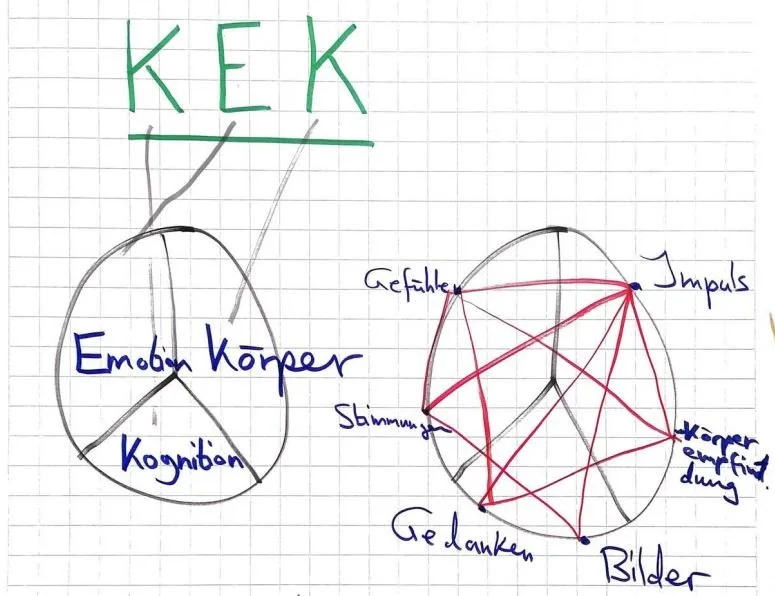 KEK
Emotion Körper
Kognition
Gefühle
Impuls
Stimmungen
Körper
empfin
dung
Gedanken
Bilder